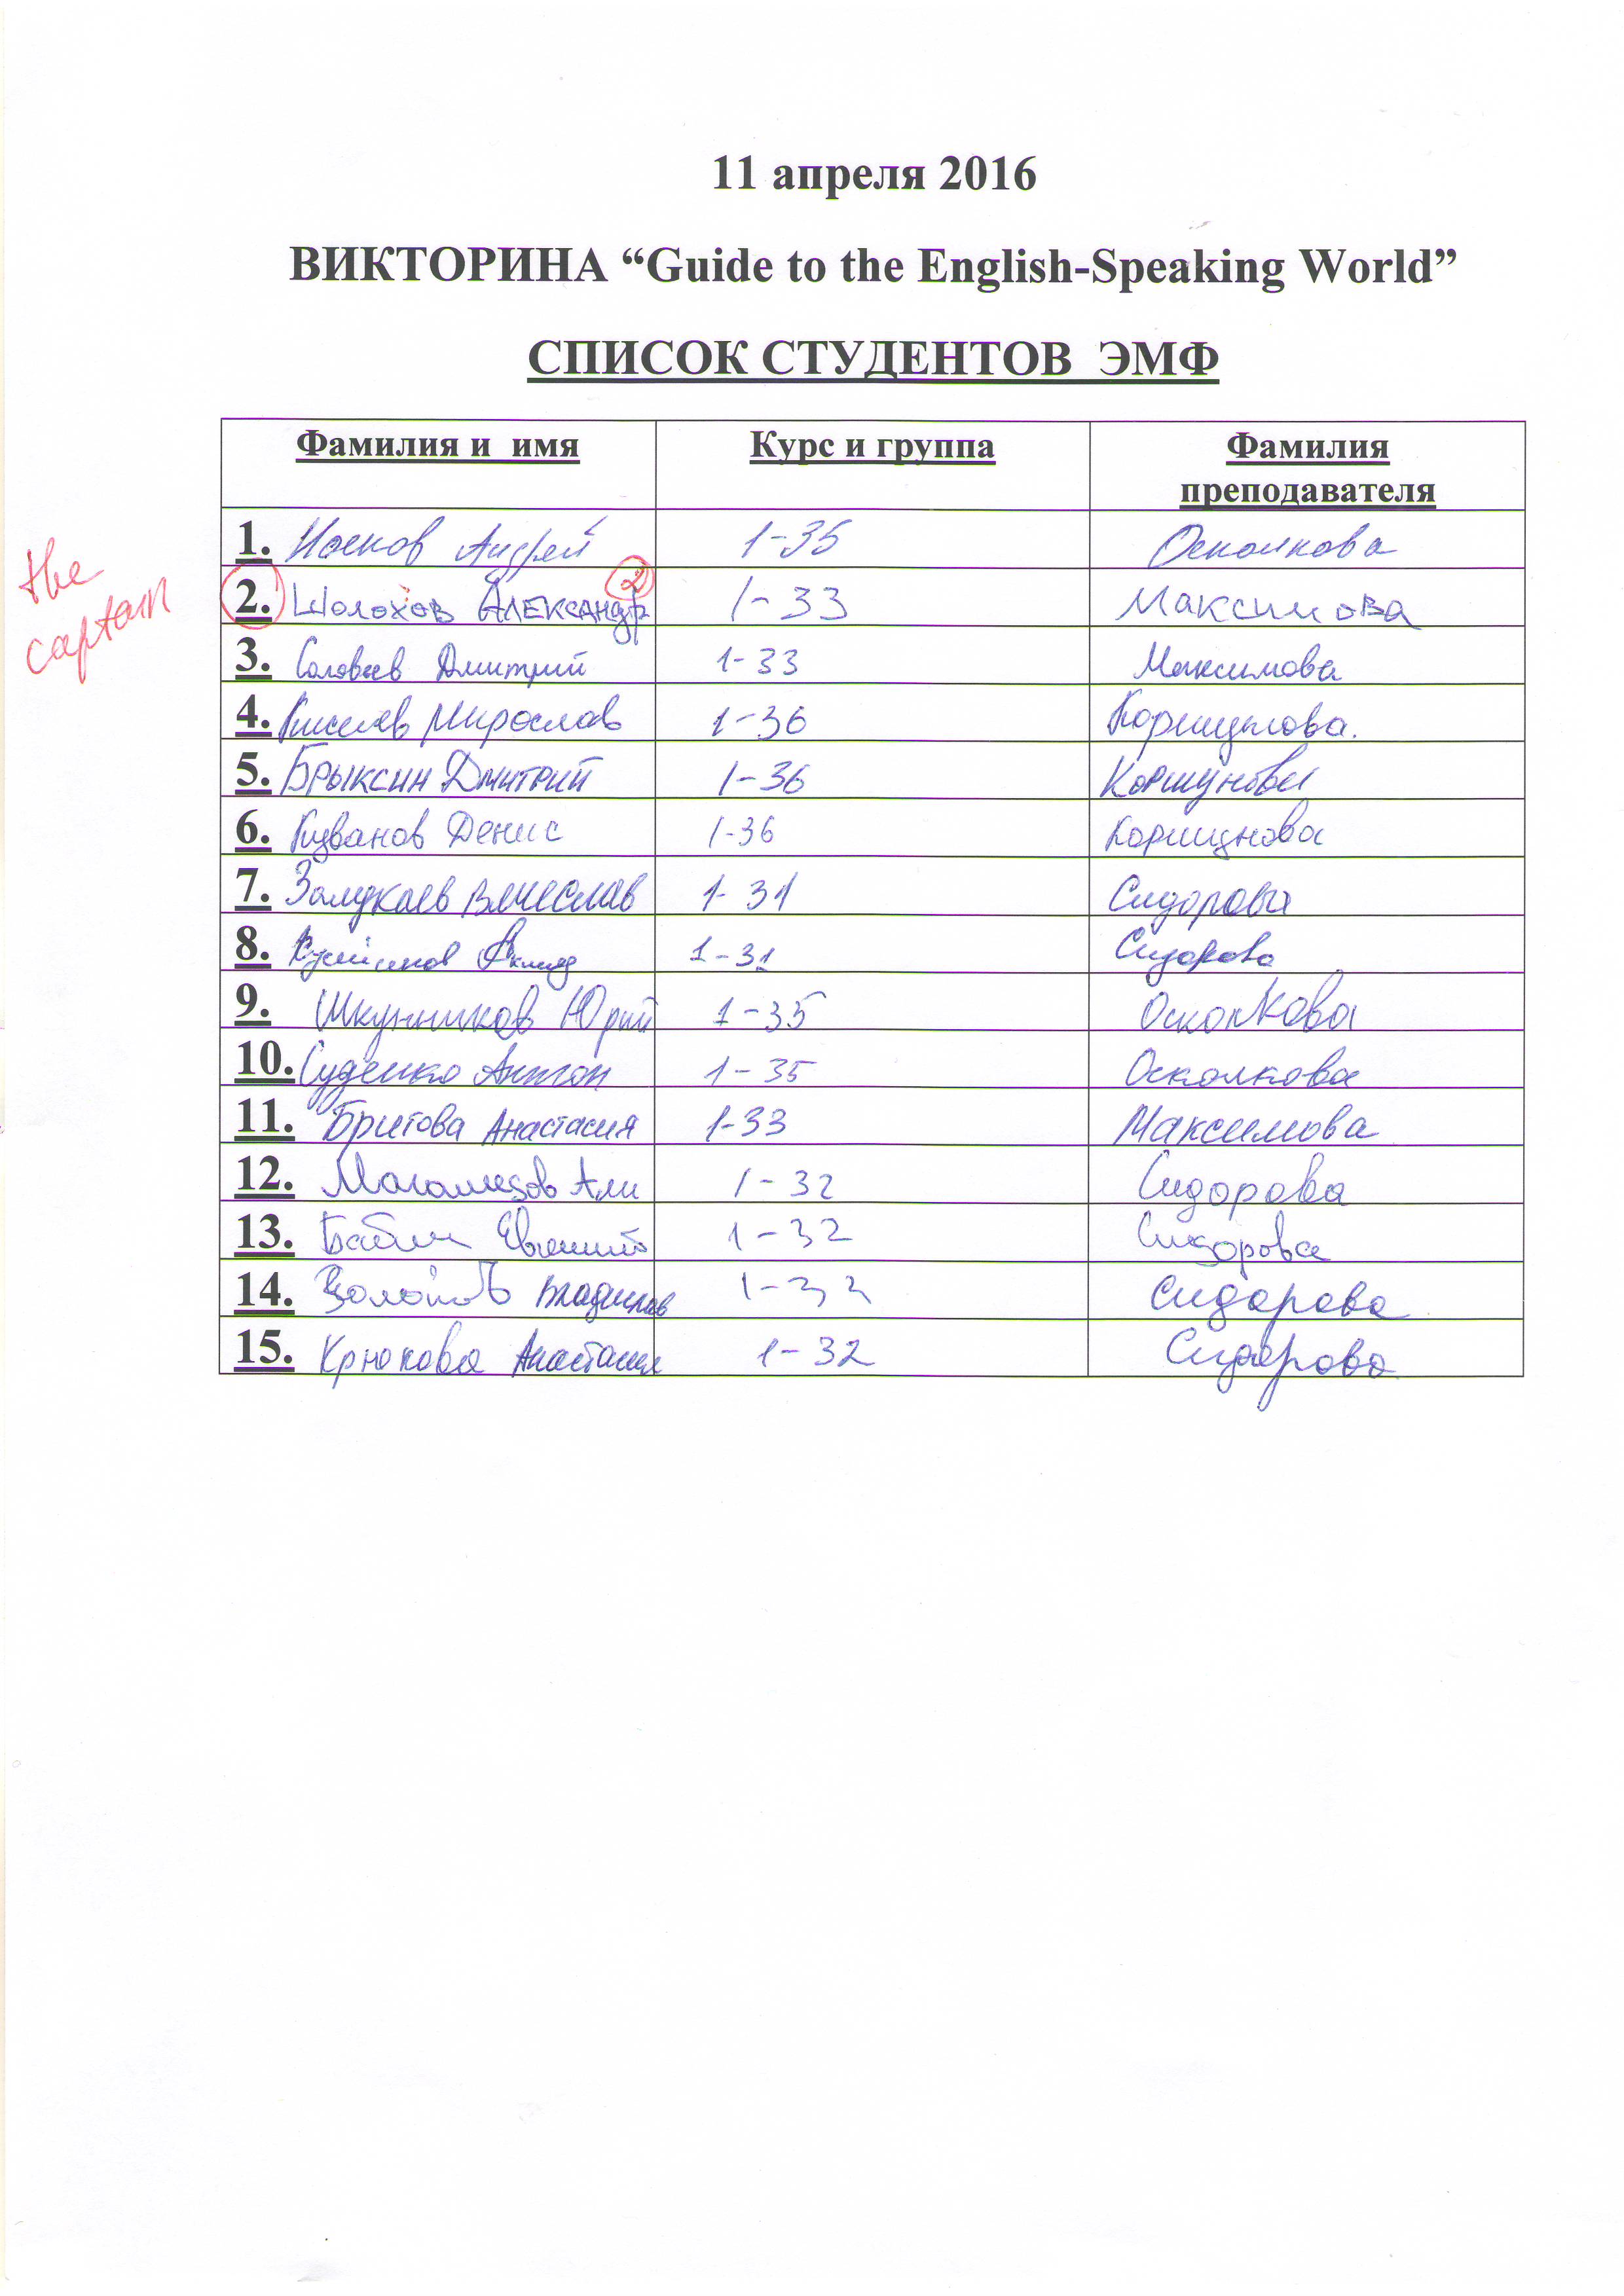 11 апреля 2016
ВИКТОРИНА “Guide to the English-Speaking World”
СПИСОК СТУДЕНТОВ ЭМФ
Фамилия и имя Курс и группа Фамилия преподавателя
1. Носков Андрей 1-35 Осколкова
the captain
2. Шолохов Александр 2 1-33 Максимова
3. Соловьев Дмитрий 1-33 Максимова
4. Киселев Мирослав 1-36 Коршунова.
5. Брыксин Дмитрий 1-36 Коршунова
6. Денис 1-36 Коршунова
7. Вячеслав 1-31 Сидорова
8. 1-31 Сидорова
9. Шкунников Юрий 1-35 Осколкова
10. Суденко Антон 1-35 Осколкова
11. Бритова Анастасия 1-33 Максимова
12. Магомедов Али 1-32 Сидорова
13. Бабин Евгений 1-32 Сидорова
14. Владислав 1-32 Сидорова
15. Крюкова Анастасия 1-32 Сидорова